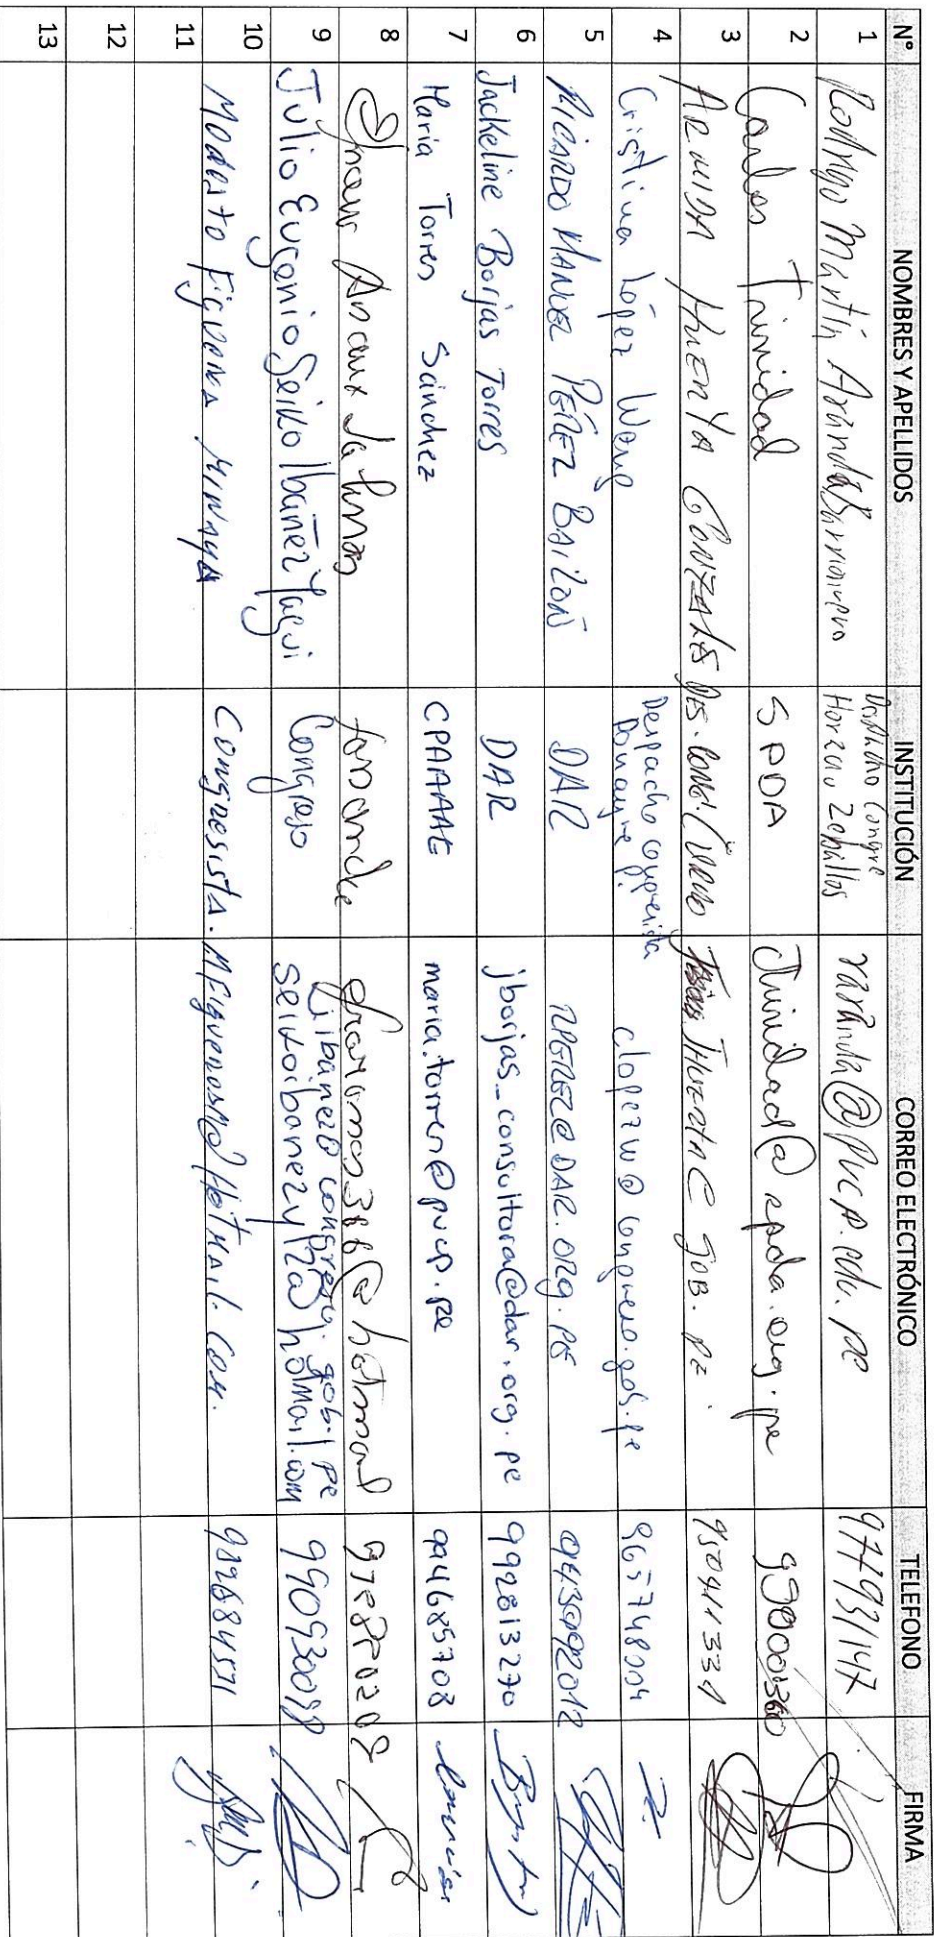 N° NOMBRES Y APELLIDOS INSTITUCIÓN CORREO ELECTRÓNICO TELEFONO FIRMA
1 Rodrigo Martín Aranda Despacho Congre Horacio Zeballos raranda@pucp.edu.pe 977931147
2 Carlos Trinidad SPDA Ctrinidad@spda.org.pe
3 ARMIDA HUERTA GONZALES 950411331
4 Cristina López Wong Despacho congresista Donayre P. clopezw@congreso.gob.pe 965748004
5 RICARDO MANUEL PÉREZ BAILON DAR RPEREZ@DAR.ORG.PE
6 Jackeline Borjas Torres DAR jborjas_consultora@dar.org.pe 992813270
7 María Torres Sánchez CPAAAAE maria.torres@pucp.pe 994685708
8 @hotmail
9 Julio Eugenio Seiko Ibañez Yagui Congreso Jibanez@congreso.gob.pe seikoibanezy12@hotmail.com 990930098
10 Modesto Figueroa Minaya Congresista. MFigueroaM@Hotmail.com. 982684571
11
12
13